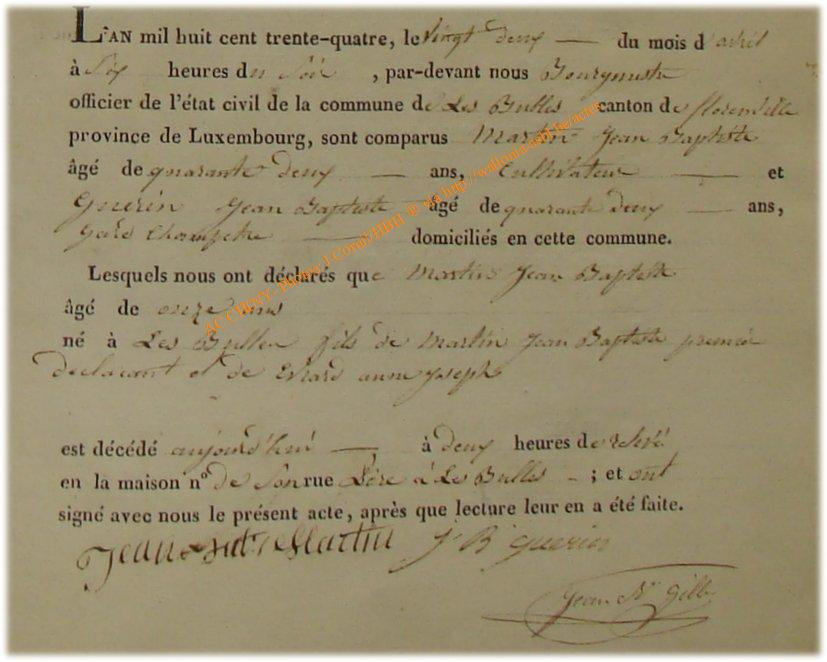 L'AN mil huit cent trente-quatre, le vingt deux du mois d'avril
à Six heures du Soir, par-devant nous Bourgmestre
officier de l'état civil de la commune de Les Bulles canton de florenville
province de Luxembourg, sont comparus Martin Jean Baptiste
âgé de quarante deux ans, Cultivateur et
Guerin Jean Baptiste âgé de quarante deux ans,
Gard Champetre domiciliés en cette commune.
Lesquels nous ont déclarés que Martin Jean Baptiste
âgé de onze ans
né à Les Bulles fils de Martin Jean Baptiste premier
declarant et de Evrard anne joseph
est décédé aujourd'hui à deux heures de relevé
en la maison n° de Son rue Père à Les Bulles ; et ont
signé avec nous le présent acte, après que lecture leur en a été faite.
Jean Martin J B Guerin
Jean Nas Gille